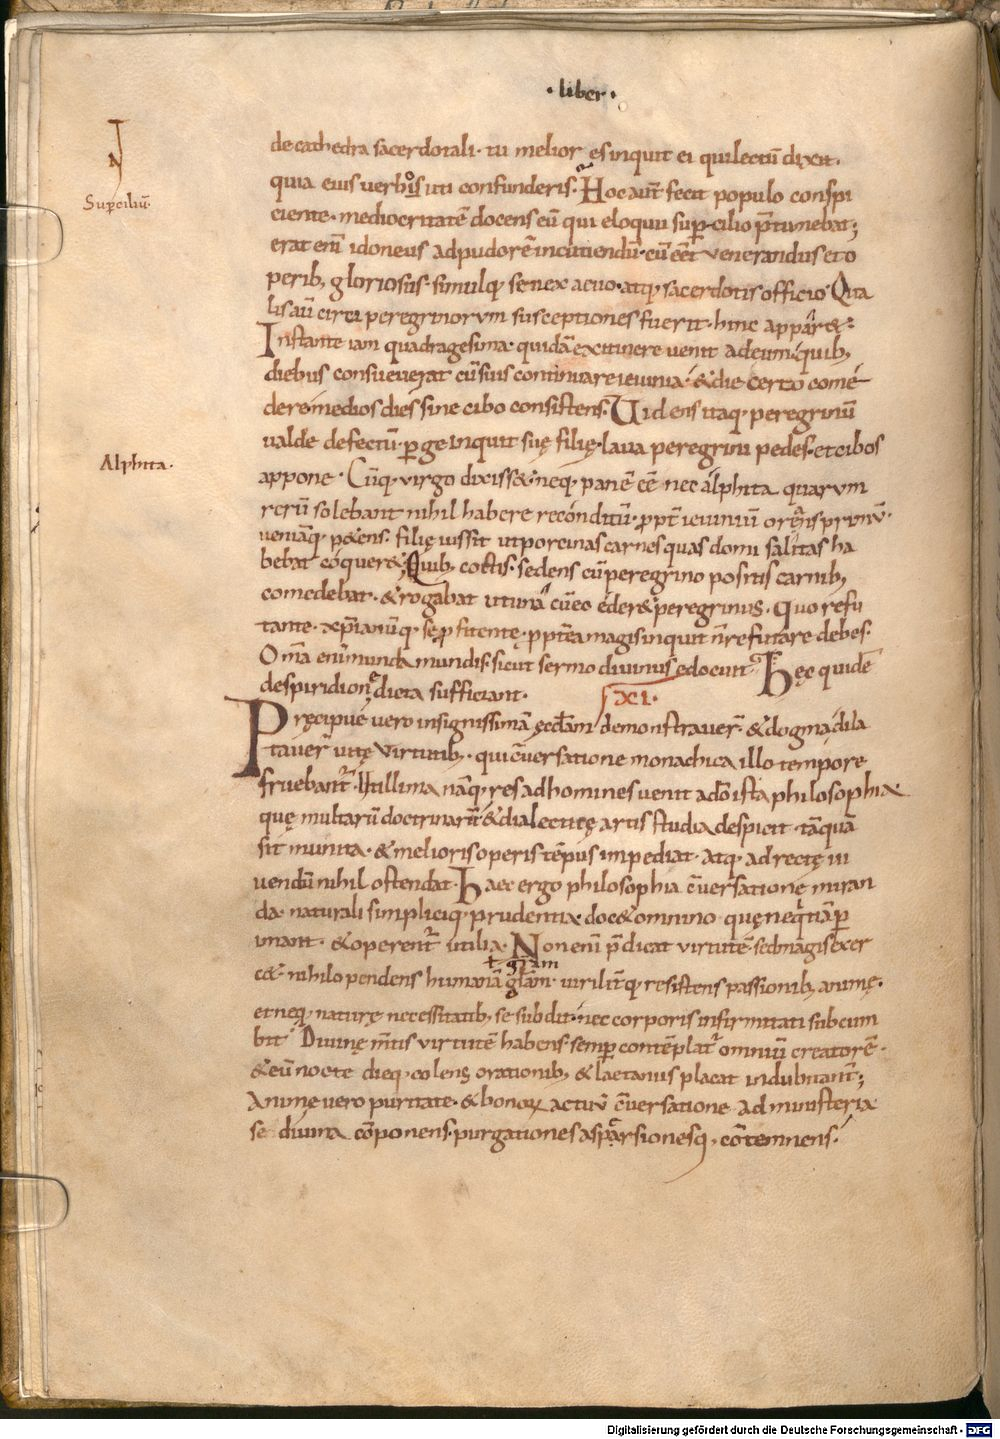 · liber ·
de cathedra sacerdotali· tu melior es inquit ei qui lectũ dixit·
Supciliũ·
quia eius verbis uti confunderis· Hoc aut̃ fecit populo conspi
ciente· mediocritatẽ docens eũ qui eloquii sup cilio p̃tumebat;
erat enĩ idoneus ad pudorẽ incutiendũ· cũ eẽt venerandus et o
perib; gloriosus· simulq; senex aeuo· atq; sacerdotis officio· Qua
lis aũ circa peregrinorum susceptiones fuerit· hinc apparet;
Instante iam quadragesima· quidã ex itinere venit ad eum· quib;
diebus consueuerat cũ suis continuare ieiunia· & die certo come
dere medios dies sine cibo consistens· Uidens itaq; peregrinũ
ualde defectũ· pge inquit suę filię· laua peregrini pedes· et cibos
Alphita·
appone· Cũq; virgo dixiss& neq; panẽ eẽ nec alphita quarum
rerũ solebant nihil habere reconditũ· ppt̃ ieiuniũ· orans primũ·
ueniãq; petens· filię iussit ut porcinas carnes quas domi salitas ha
bebat coquer&; Quib; coctis· sedens cũ peregrino positis carnib;
comedebat· & rogabat ut unã cũ eo eder& peregrinus· Quo refu
tante· xp̃ianũq; se pfitente· pptea magis inquit ñ refutare debes·
Om̃a enĩ munda mundis· sicut sermo diuinus edocuit· Hęc quidẽ
de spiridione dicta sufficiant· XI·
Pręcipue vero insignissimã ęcc̃łam demonstrauer̃· & dogma dila
tauer̃ uitę virtutib;· qui c̃uersatione monachica illo tempore
fruebant̃· Utillima nãq; res ad homines uenit a dõ ista philosophia·
quę multarũ doctrinarũ & dialecticę artis studia despicit· tãquã
sit munita· & melioris operis tẽpus impediat· atq; ad recte ui
uendũ nihil ostendat· Haec ergo philosophia c̃uersatione miran
da· naturali simpliciq; prudentia doc& omnino quę nequitiã p
imant· & operent̃ utilia· Non enĩ p̃dicat virtutẽ· sed magis exer
ł gr̃am
c&· nihilo pendens humanã gl̃am· uirilit̃q; resistens passionib; animę·
et neq; naturę necessitatib; se subdit· nec corporis infirmitati subcum
bit· Diuinę m̃tis virtutẽ habens· semp contẽplat̃ omniũ creatorẽ·
& eũ nocte dieq; colens orationib; & laetaniis placat indubitant̃;
Animę uero puritate· & bonoꝝ actuũ c̃uersatione ad ministeria
se diuina cõponens· purgationes aspersionesq; cõtemnens·
Digitalisierung gefördert durch die Deutsche Forschungsgemeinschaft - DFG